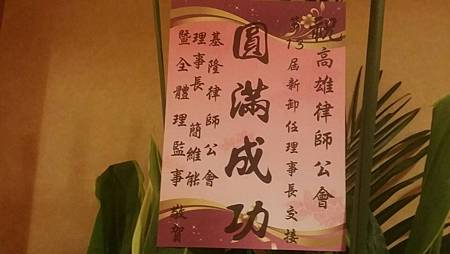 祝高雄律師公會
第13屆新卸任理事長交接
圓滿成功
基隆律師公會
理事長 簡維能
暨全體理監事 敬賀